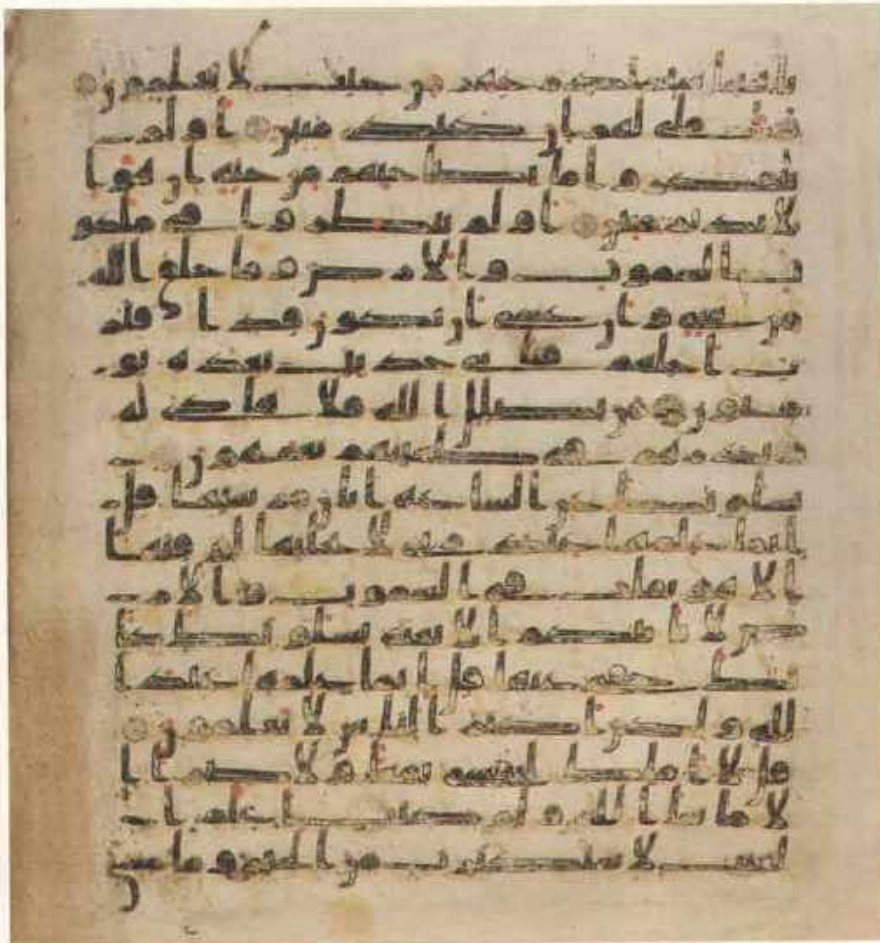 بايتنا سنستدرجهم من حيث لا يعلمون
واملي لهم ان كيدي متين اولم
يتفكروا ما بصاحبهم من جنة ان هو ا
لا نذير مبين اولم ينظروا في ملكو
ت السموت والارض وما خلق الله
من شيء وان عسى ان يكون قد اقتر
ب اجلهم فباي حديث بعده يو
منون من يضلل الله فلا هادي له
ويذرهم في طغينهم يعمهون
يسلونك عن الساعة ايان مرسيها قل
انما علمها عند ربي لا يجليها لوقتها
الا هو ثقلت في السموت والار
ض لا تاتيكم الا بغتة يسلونك كا
نك حفي عنها قل انما علمها عند ا
لله ولكن اكثر الناس لا يعلمون
قل لا املك لنفسي نفعا ولا ضرا ا
لا ما شا الله ولو كنت اعلم ا
لغيب لاستكثرت من الخير وما مسني